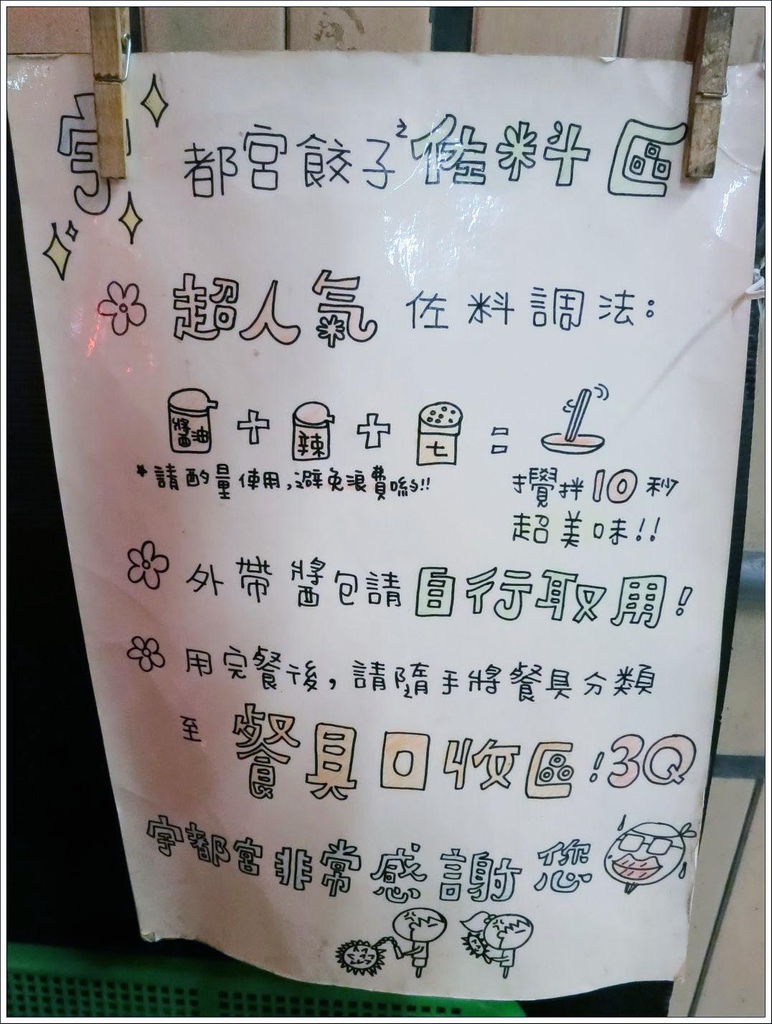 宇都宮餃子之佐料區
超人氣 佐料調法:
醬油 + 辣 + 七 =
*請酌量使用,避免浪費喲!!
攪拌10秒
超美味!!
外帶醬包請自行取用!
用完餐後,請隨手將餐具分類
至 餐具回收區!3Q
宇都宮非常感謝您